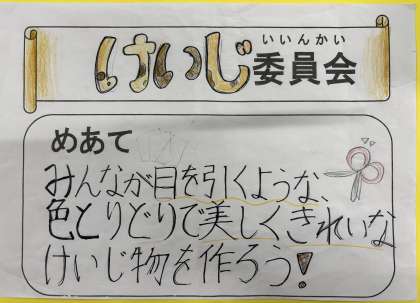 いいんかい
けいじ委員会
めあて
みんなが目を引くような、
色とりどりで美しくきれいな
けいじ物を作ろう!